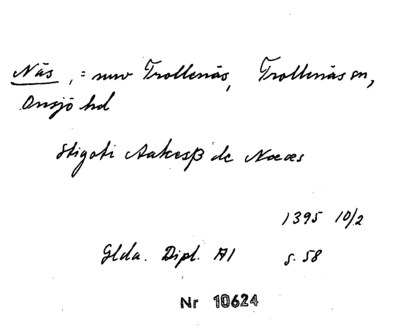 Näs, = nuv Trollenäs, Trollenäs sn,
Onsjö hd
Stigoti Aakesß de Noæs
1395 10/2
Glda. Dipl. AI s. 58
Nr 10624